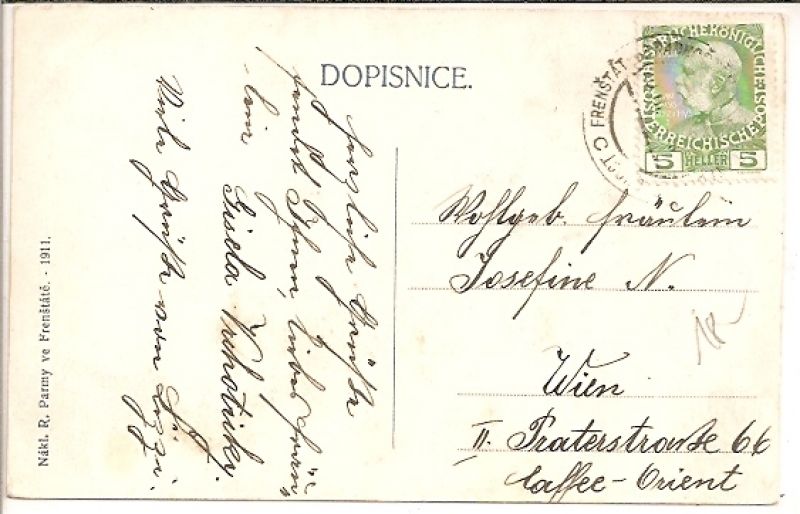 DOPISNICE.
herzliche Grüße
sendet Ihnen, liebes Fräu„
lein
Gisela
Viele Grüße von
Nákl. R. Parmy ve Frenštátě. - 1911.
KAISERLICHE KÖNIGLICHE
ÖSTERREICHISCHE POST
5 HELLER 5
FRENŠTÁT
Wohlgeb. Fräulein
Josefine N.
Wien
II. Praterstraße 66
Caffee-Orient